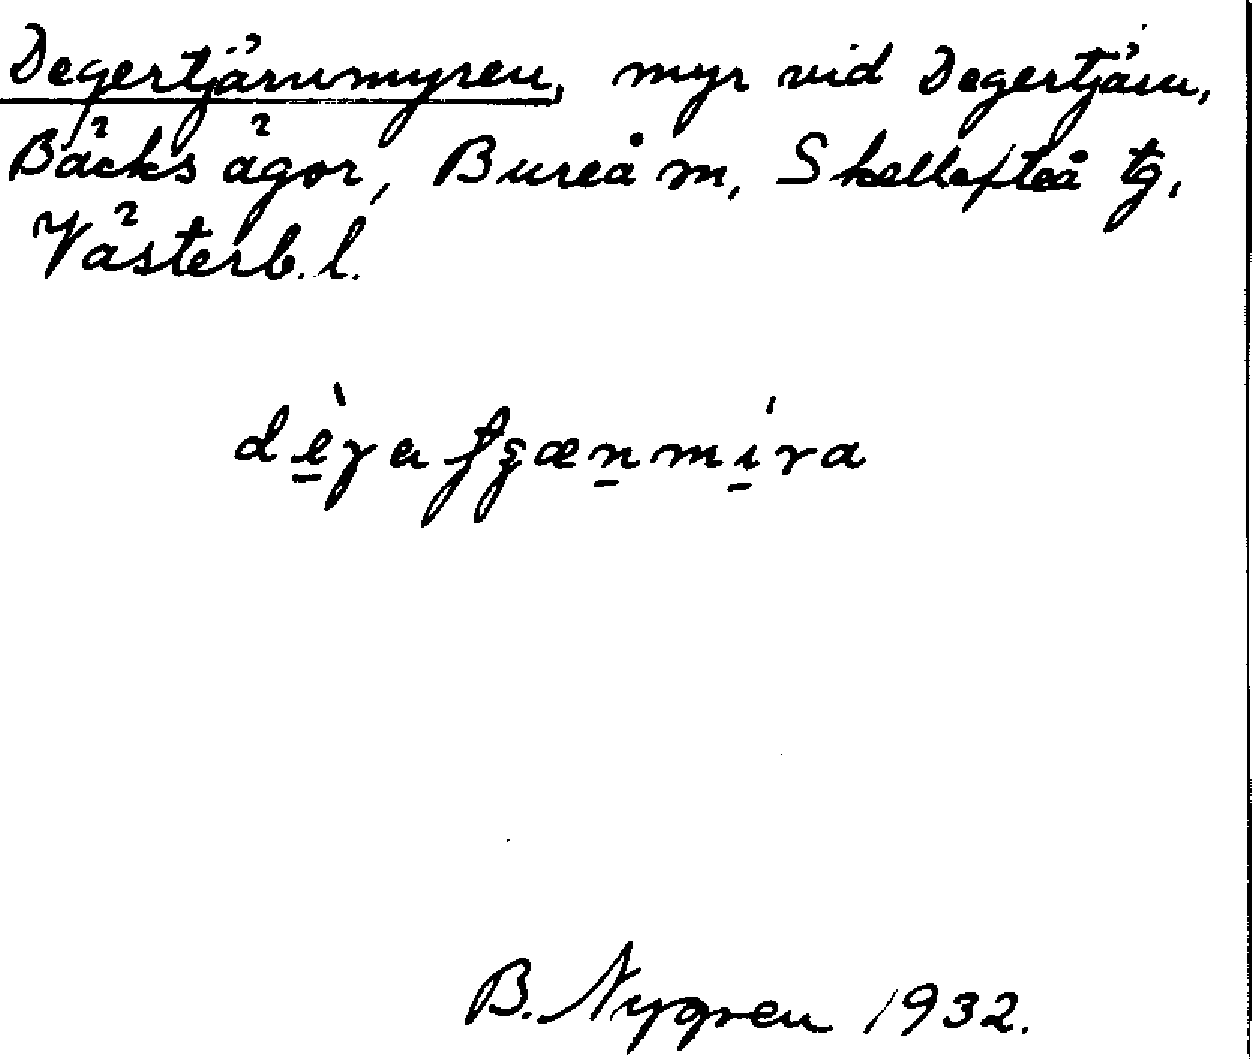 Degertjärnmyren, myr vid Degertjärn,
Bäcks ägor, Bureå m, Skellefteå tg,
Västerb. l.
B. Nygren 1932.